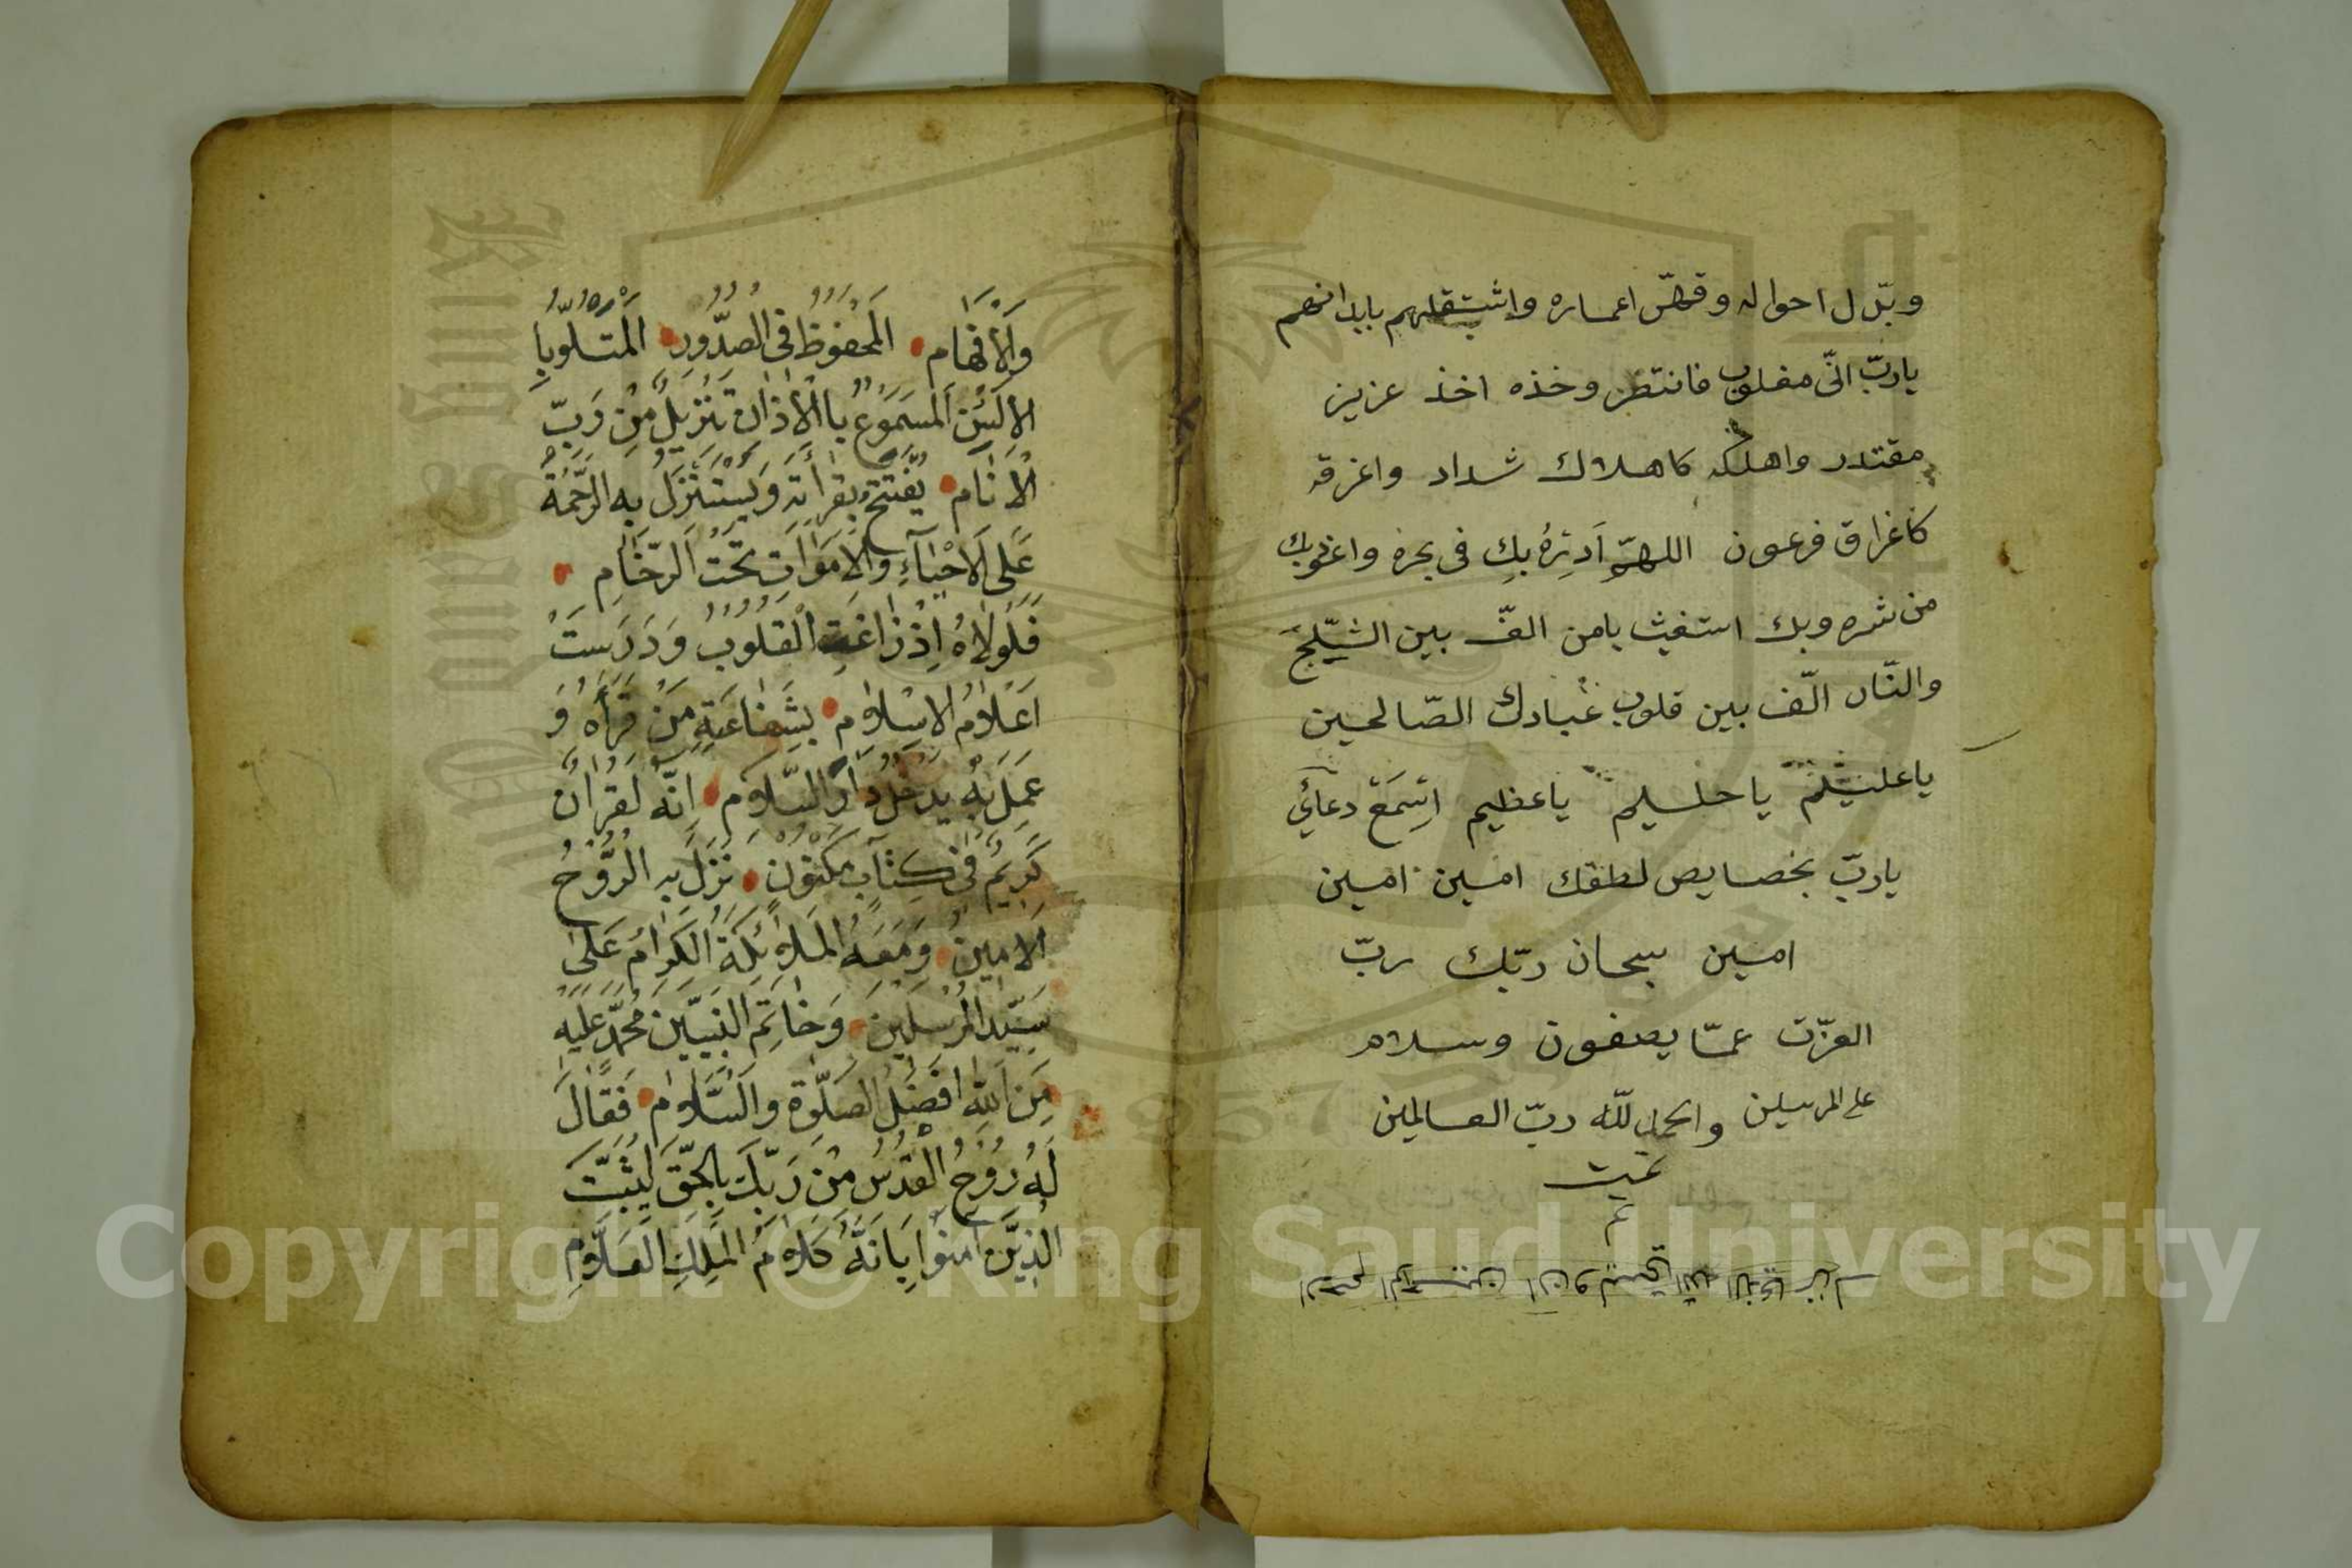 وبدّل احواله وقصّر اعماره واشتغلهم بابدانهم
ياربّ انّى مغلوب فانتصر وخذه اخذ عزيز
مقتدر واهلكه كاهلاك شداد واغرقه
كاغراق فرعون اللهمّ اَدرِئهُ بِكِ فى نحره واعوذبك
من شره وبك استغيث يامن الفّ بين الثّلج
والنّار الّف بين قلوب عبادك الصّالحين
ياعليم ياحليم ياعظيم اِسمَعْ دعائي
ياربّ بخصايص لطفك امين امين
امين سبحان ربّك ربّ
العزّت عمّا يصفون وسلام
على المرسلين والحمد للّه ربّ العالمين
تمت
م
وَالْاَفْهَام اَلْمَحْفُوظُ فِى الصُّدُورِ اَلْمَتْلُوُّ بِا
لاَلْسُنِ اَلْمَسْمُوعُ بِاالْاٰذَانِ تَنْزِيلٌ مِنْ رَبِّ
الْاَنَام يُفْتَتَحُ بِقِرَأَتِهِ وَيُسْتَنْزَلُ بِهِ الرَّحْمَةُ
عَلَى الْاَحْيَاۤءِ وَالْاَمْوَاتِ تَحْتَ الرِّخَامِ
فَلَوْلاٰهُ اِذْ زَاغَتِ الْقُلُوبُ وَدَرَسَتْ
اَعْلاٰمُ الاِسْلاٰم بِشَفَاعَتِهِ مَنْ قَرَأَهُ وَ
عَمِلَ بِهِ يَدْخُلُ دَارَ السَّلاٰم اِنَّهُ لَقُرْاٰنٌ
كَرِيمٌ فِى كِتَابٍ مَكْنُونٍ نَزَلَ بِهِ الرُّوحُ
الْاَمِينُ وَمَعَهُ الْمَلاٰئِكَةُ الْكِرَامُ عَلٰى
سَيِّدِ الْمُرْسَلِينَ وَخَاتِمِ النَّبِيّينَ مُحَمَّدٍ عَلَيْهِ
مِنَ اللّٰهِ اَفْضَلُ الصَّلٰوةِ وَالسَّلاٰم فَقَالَ
لَهُ رُوحُ الْقُدُسِ مِنْ رَبِّكَ بِالْحَقِّ لِيُثَبِّتَ
الَّذِينَ اٰمَنُوا بِاَنَّهُ كَلاٰمُ الْمَلِكِ الْعَلاَّمِ
Copyright © King Saud University